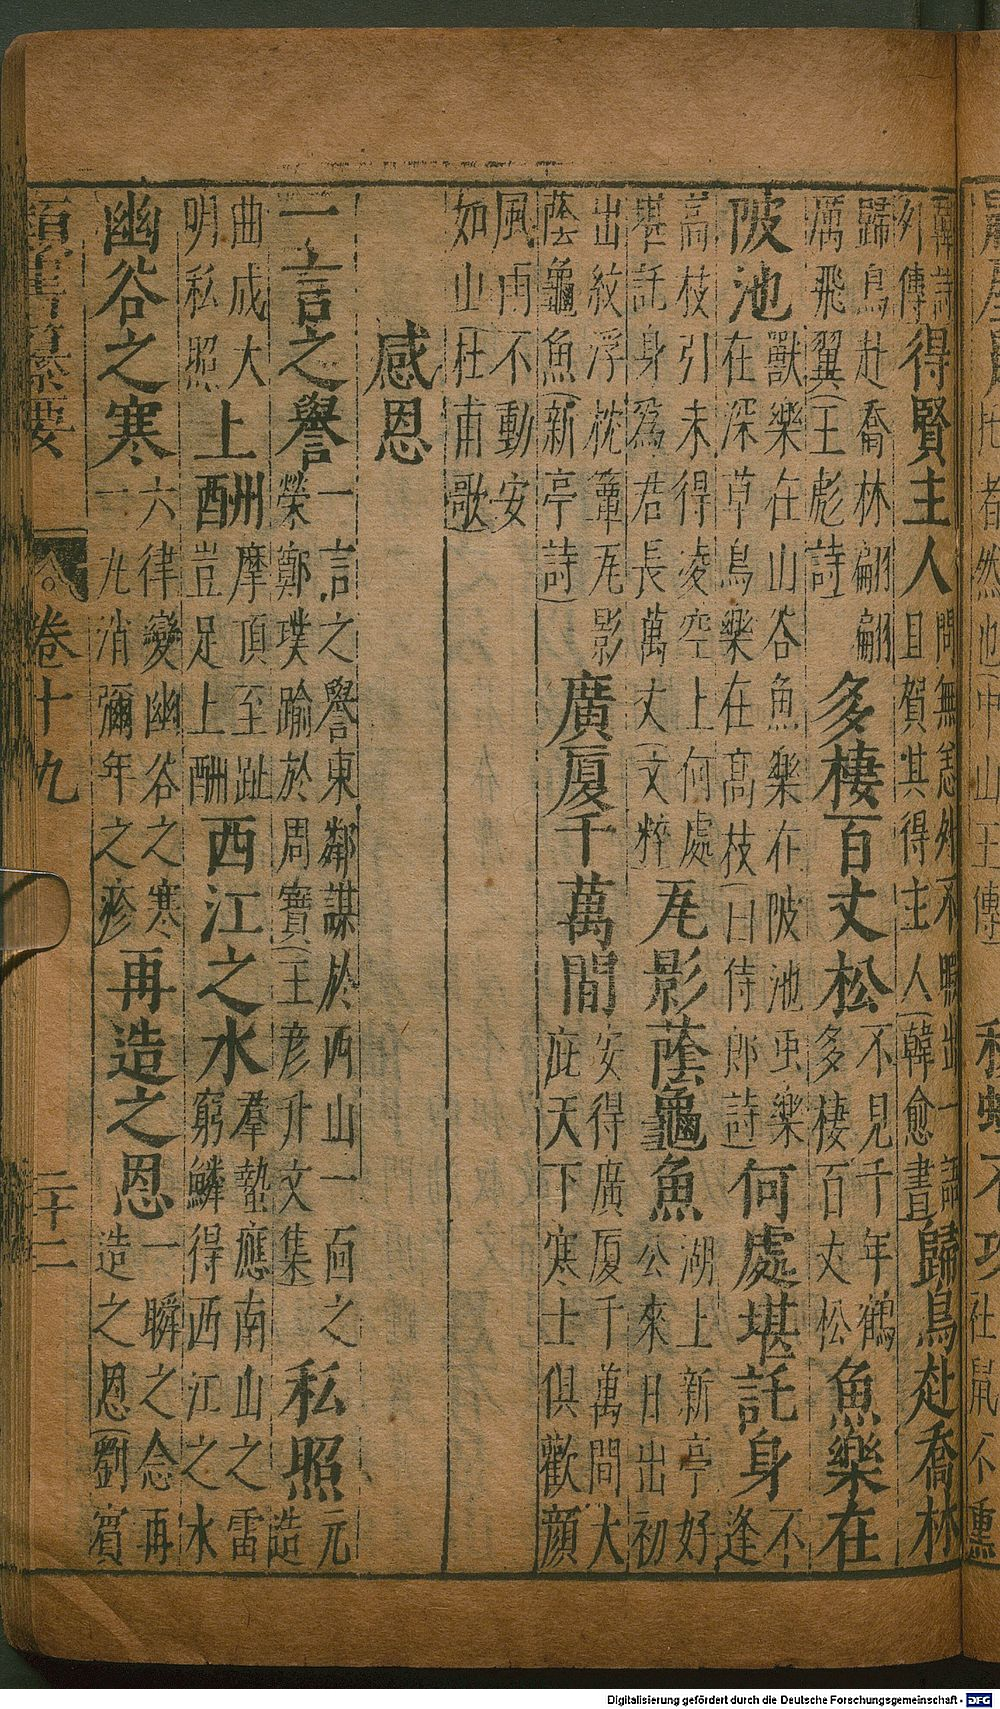 韓詩外傳得賢主人問無恙外不暇出一語且賀其得主人韓愈書歸鳥赴喬林
歸鳥赴喬林翩翩厲飛翼王彪詩多棲百丈松不見千年鶴多棲百丈松魚樂在
陂池獸樂在山谷魚樂在陂池虫樂在深草鳥樂在高枝白侍郎詩何處堪託身不逢
高枝引未得凌空上何處堪託身為君長萬丈文粹瓦影蔭龜魚湖上新亭好公來日出初
出紋浮枕簟瓦影蔭龜魚新亭詩廣厦千萬間安得廣厦千萬間大庇天下寒士俱歡顔
風雨不動安如山杜甫歌
感恩
一言之譽一言之譽東鄰謀於西山一面之榮鄭璞踰於周寶王彦升文集私照元造
曲成大明私照上酬州摩頂至趾豈足上酬西江之水羣蟄應南山之雷窮鱗得西江之水
幽谷之寒六律變幽谷之寒一九消彌年之疹再造之恩一瞬之念再造之恩劉賓
類雋纂要 卷十九 二十二
Digitalisierung gefördert durch die Deutsche Forschungsgemeinschaft - DFG